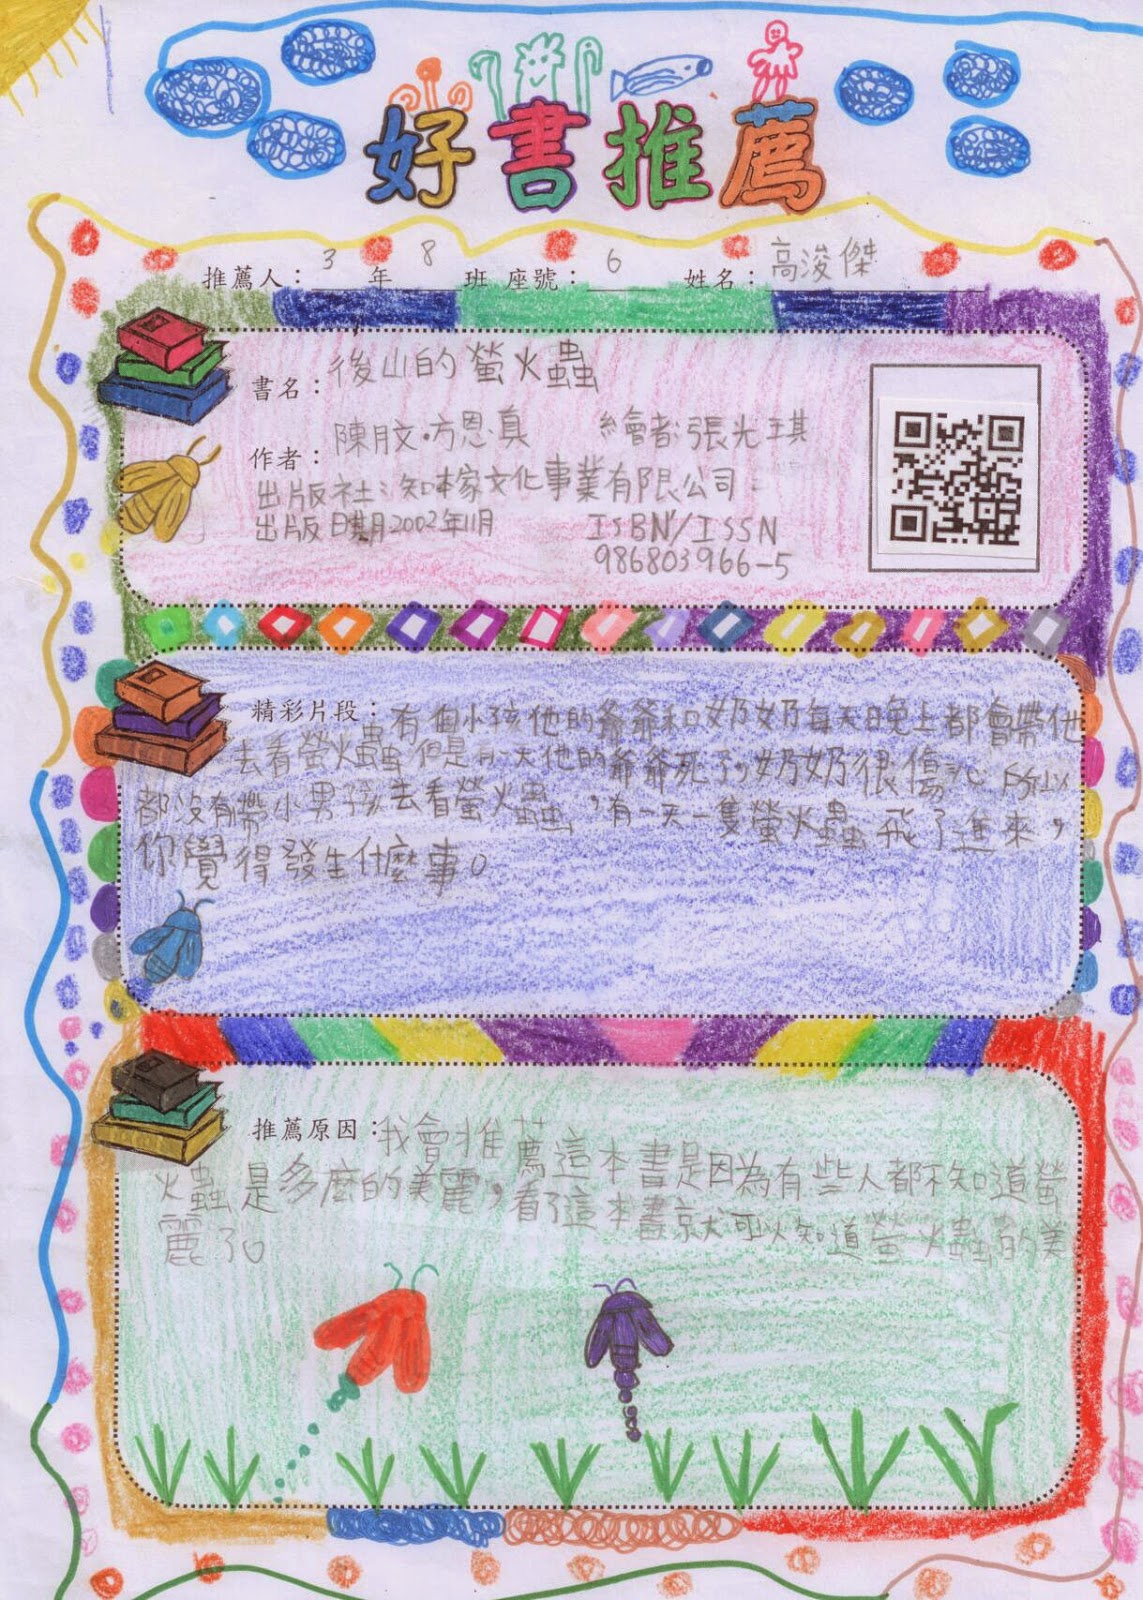 好書推薦
推薦人：3年8班 座號：6 姓名：高浚傑
書名：後山的螢火蟲
作者：陳月文．方恩真 繪者:張光琪
出版社:知本家文化事業有限公司
出版日期2002年11月 ISBN/ISSN
986803966-5
精彩片段：有個小孩他的爺爺和奶奶每天晚上都會帶他
去看螢火蟲但是有一天他的爺爺死了，奶奶很傷心所以
都沒有帶小男孩去看螢火蟲，有一天一隻螢火蟲飛了進來，
你覺得發生什麼事。
推薦原因：我會推薦這本書是因為有些人都不知道螢
火蟲是多麼的美麗，看了這本書就可以知道螢火蟲的美
麗了。